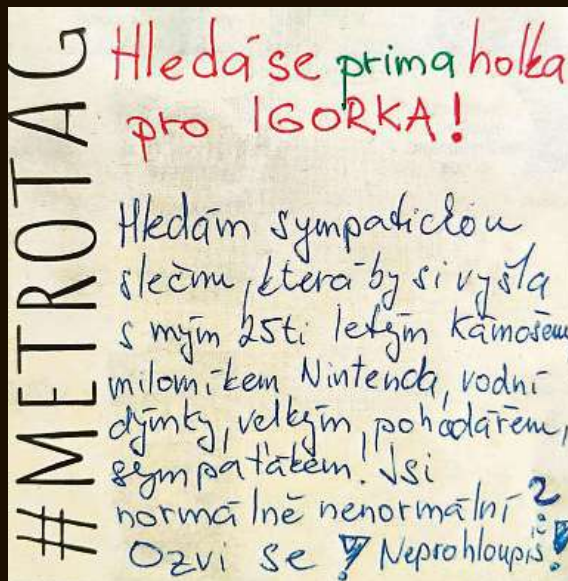 #METROTAG
Hledá se prima holka
pro IGORKA!
Hledám sympatickou
slečnu, která by si vyšla
s mým 25ti letým kámošem,
milovníkem Nintenda, vodní
dýmky, velkým, pohodářem,
sympaťákem! Jsi
normálně nenormální?
Ozvi se! Neprohloupíš!